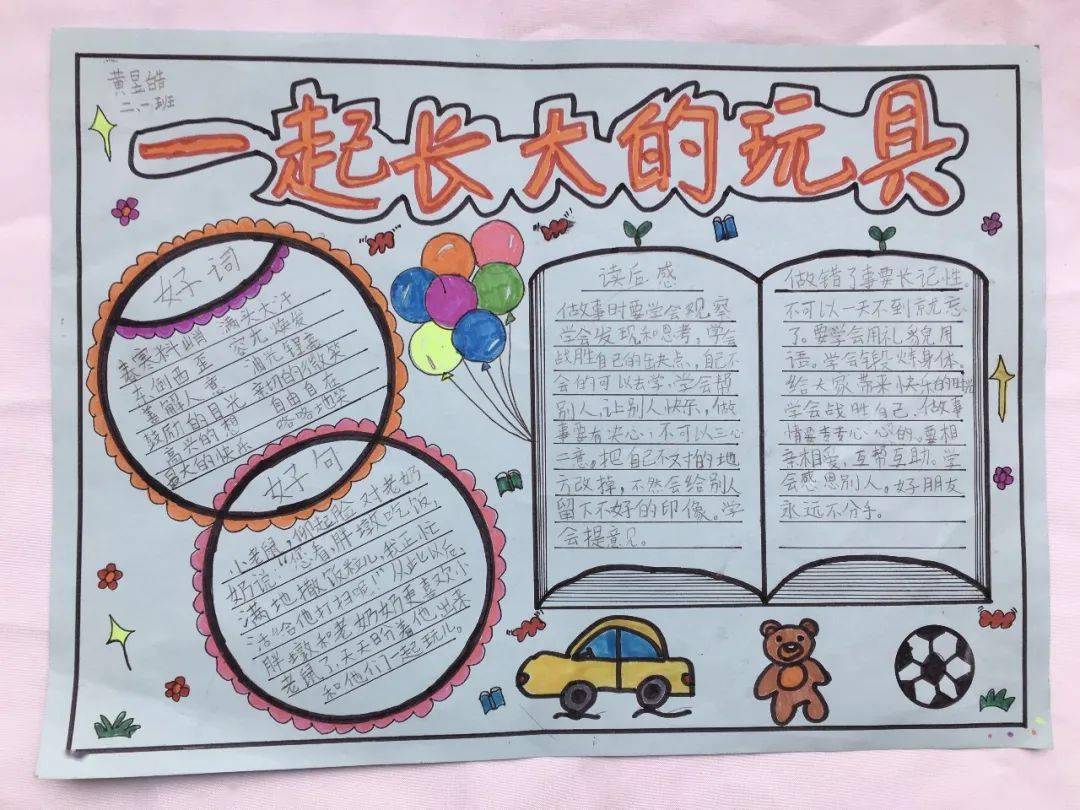 黄昱皓
二、一班
一起长大的玩具
好词
春寒料峭 满头大汗
东倒西歪 容光焕发
善解人意 油光锃亮
鼓励的目光 亲切的微笑
高兴的想 自由自在
最大的快乐 咯咯地笑
好句
小老鼠,仰起脸,对老奶
奶说:“您看,胖墩吃饭,
满地撒饭粒儿,我正忙
活给他打扫呢!”从此以后,
胖墩和老奶奶更喜欢小
老鼠了,天天盼着他出来
和他们一起玩儿。
读后感
做事时要学会观察
学会发现和思考,学会
战胜自己的缺点,自己不
会的可以去学,学会帮
别人,让别人快乐,做
事要有决心,不可以三心
二意。把自己不对的地
方改掉,不然会给别人
留下不好的印像。学
会提意见。
做错了事要长记性。
不可以一天不到就忘
了。要学会用礼貌用
语。学会锻炼身体,
给大家带来快乐的时光
学会战胜自己,做事
情要专心心的。要相
亲相爱,互帮互助。学
会感恩别人。好朋友
永远不分手。